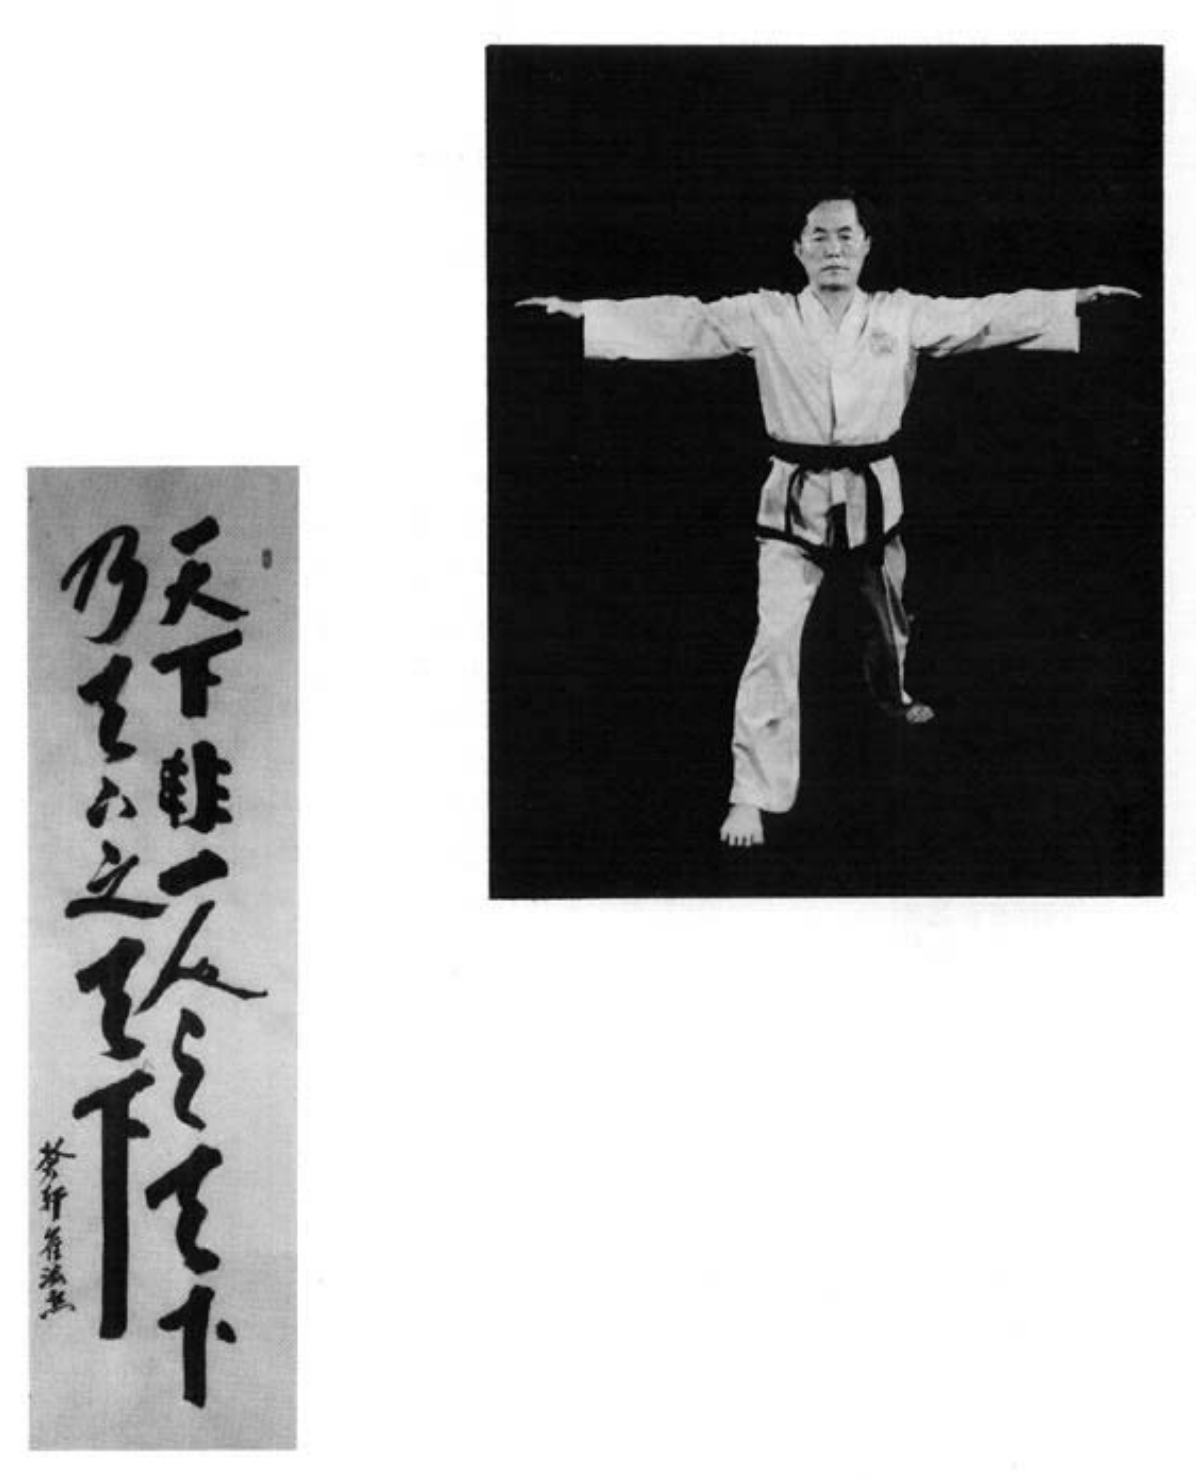 天下非一人之天下
乃天下之天下
蒼軒崔泓熙